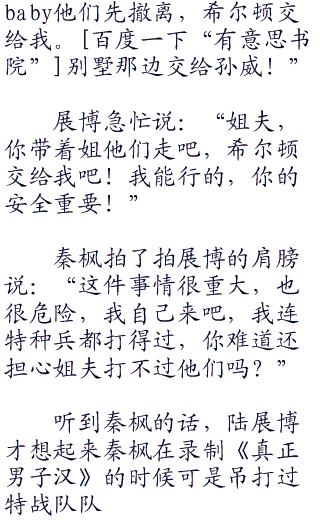 baby他们先撤离，希尔顿交
给我。[百度一下“有意思书
院”]别墅那边交给孙威！”
展博急忙说：“姐夫，
你带着姐他们走吧，希尔顿
交给我吧！我能行的，你的
安全重要！”
秦枫拍了拍展博的肩膀
说：“这件事情很重大，也
很危险，我自己来吧，我连
特种兵都打得过，你难道还
担心姐夫打不过他们吗？”
听到秦枫的话，陆展博
才想起来秦枫在录制《真正
男子汉》的时候可是吊打过
特战队队